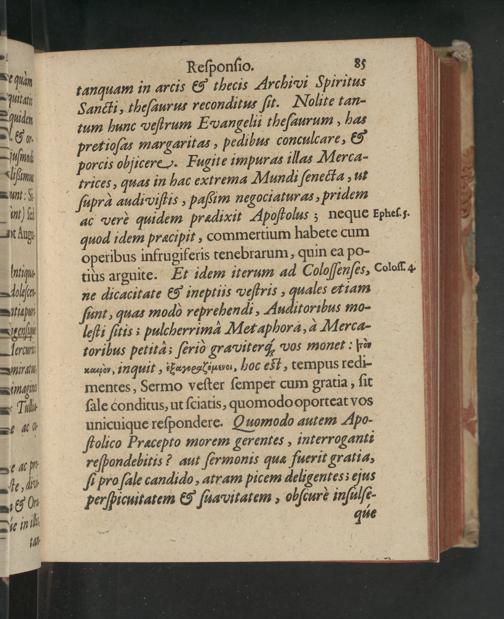 Responsio. 85
tanquam in arcis & thecis Archivi Spiritus
Sancti, thesaurus reconditus sit. Nolite tan-
tum hunc vestrum Evangelii thesaurum, has
pretiosas margaritas, pedibus conculcare, &
porcis objicere. Fugite impuras illas Merca-
trices, quas in hac extrema Mundi senecta, ut
suprà audivistis, passim negociaturas, pridem
ac verè quidem prædixit Apostolus; neque Ephes. 5.
quod idem præcipit, commertium habete cum
operibus infrugiferis tenebrarum, quin ea po-
tiùs arguite. Et idem iterum ad Colossenses, Coloss. 4.
ne dicacitate & ineptiis vestris, quales etiam
sunt, quas modò reprehendi, Auditoribus mo-
lesti sitis; pulcherrimâ Metaphorâ, à Merca-
toribus petitâ; seriò graviterq́; vos monet: τὸν
καιρὸν, inquit, ἐξαγοραζόμενοι, hoc est, tempus redi-
mentes, Sermo vester semper cum gratia, sit
sale conditus, ut sciatis, quomodo oporteat vos
unicuique respondere. Quomodo autem Apo-
stolico Præcepto morem gerentes, interroganti
respondebitis? aut sermonis quæ fuerit gratia,
si pro sale candido, atram picem deligentes; ejus
perspicuitatem & suavitatem, obscurè insulse-
qúe